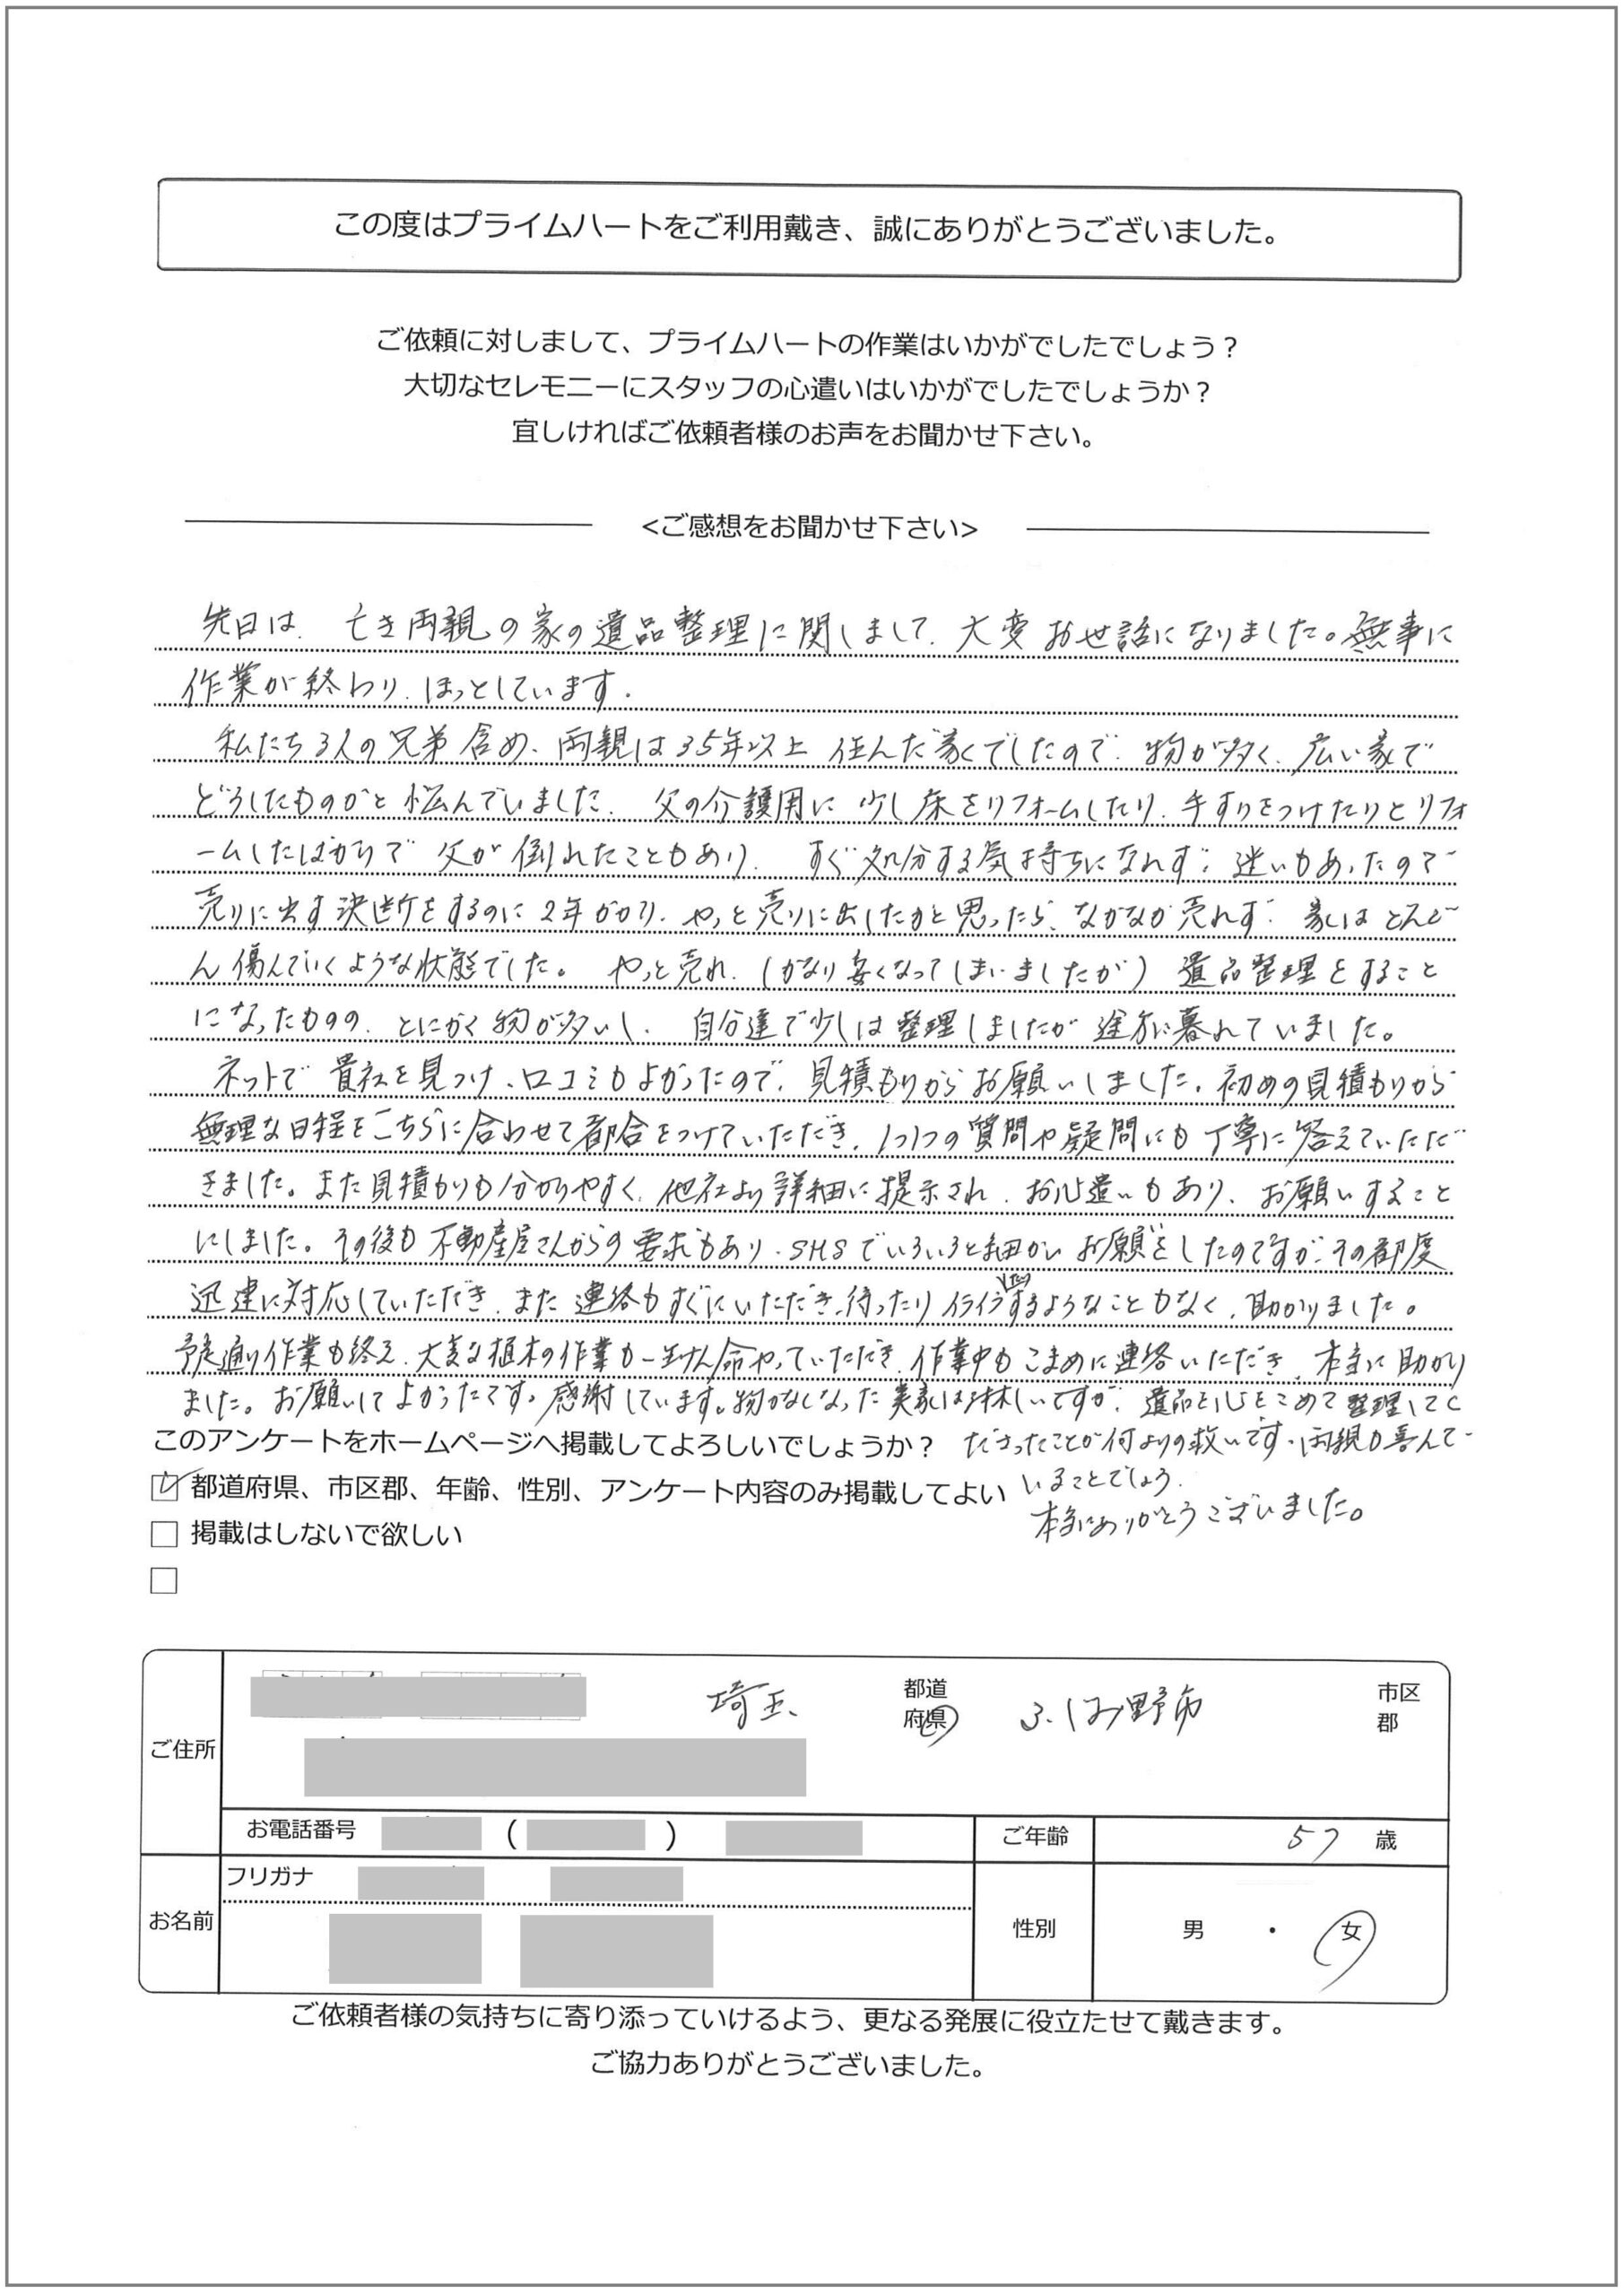 この度はプライムハートをご利用戴き、誠にありがとうございました。
ご依頼に対しまして、プライムハートの作業はいかがでしたでしょう？
大切なセレモニーにスタッフの心遣いはいかがでしたでしょうか？
宜しければご依頼者様のお声をお聞かせ下さい。
<ご感想をお聞かせ下さい>
先日は、亡き両親の家の遺品整理に関しまして、大変お世話になりました。無事に
作業が終わり、ほっとしています。
私たち3人の兄弟含め、両親は35年以上住んだ家でしたので、物が多く、広い家で
どうしたものかと悩んでいました。父の介護用に少し床をリフォームしたり、手すりをつけたりとリフォ
ームしたばかりで父が倒れたこともあり、すぐ処分する気持ちになれず、迷いもあったので
売りに出す決断をするのに2年かかり、やっと売りに出したかと思ったら、なかなか売れず、家はどんど
ん傷んでいくような状態でした。やっと売れ、(かなり安くなってしまいましたが)遺品整理をすること
になったものの、とにかく物が多いし、自分達で少しは整理しましたが途方に暮れていました。
ネットで貴社を見つけ、口コミもよかったので、見積もりからお願いしました。初めの見積もりから
無理な日程をこちらに合わせて都合をつけていただき、1つ1つの質問や疑問にも丁寧に答えていただ
きました。また見積もりも分かりやすく、他社より詳細に提示され、お心遣いもあり、お願いすること
にしました。その後も不動産屋さんからの要求もあり、SHSでいろいろと細かいお願いをしたのですが、その都度
迅速に対応していただき、また連絡もすぐにいただき、待ったりイライラするようなこともなく、助かりました。
予定通り作業も終え、大変な植木の作業も一生けん命やっていただき、作業中もこまめに連絡いただき、本当に助かり
ました。お願いしてよかったです。感謝しています。物がなくなった実家は淋しいですが、遺品を心をこめて整理してく
ださったことが何よりの救いです。両親も喜んで
いることでしょう。
本当にありがとうございました。
このアンケートをホームページへ掲載してよろしいでしょうか？
☑ 都道府県、市区郡、年齢、性別、アンケート内容のみ掲載してよい
□ 掲載はしないで欲しい
□
ご住所 埼玉 都道府県 ふじみ野市 市区郡
お電話番号 ( ) ご年齢 57 歳
フリガナ
お名前 性別 男 ・ 女
ご依頼者様の気持ちに寄り添っていけるよう、更なる発展に役立たせて戴きます。
ご協力ありがとうございました。